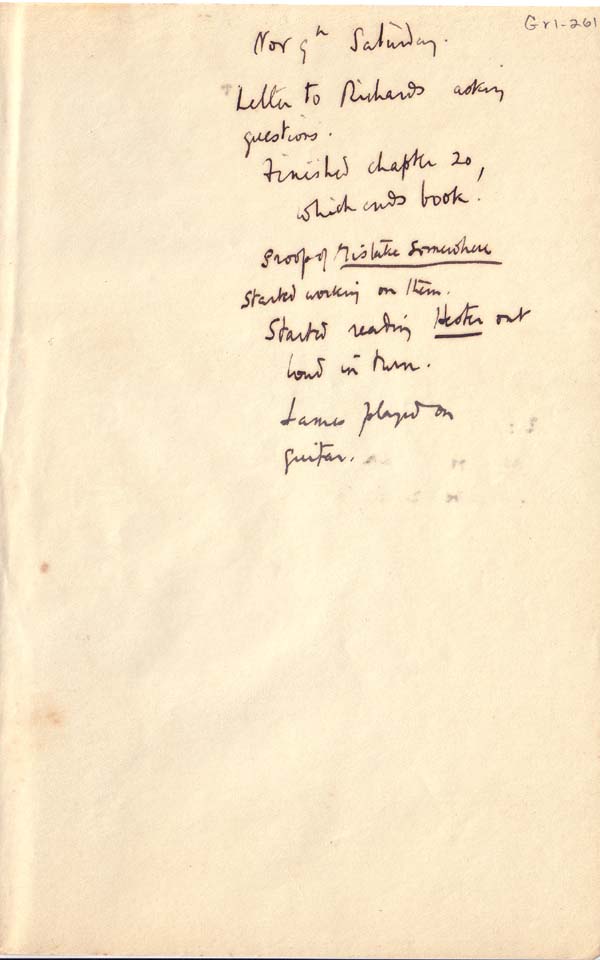 Gr1-261
Nov 9th Saturday.
Letter to Richards asking
questions.
Finished chapter 20,
which ends book.
proof of Mistake Somewhere
Started working on them.
Started reading out
loud in turn.
James played on
guitar.